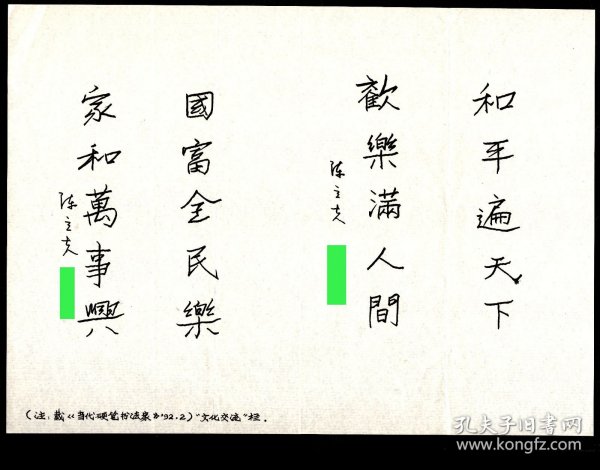 和平遍天下
歡樂滿人間
陈立夫
國富全民樂
家和萬事興
陈立夫
(注:載《当代硬笔书法家》'92.2)"文化交流"栏.
孔夫子旧书网
www.kongfz.com